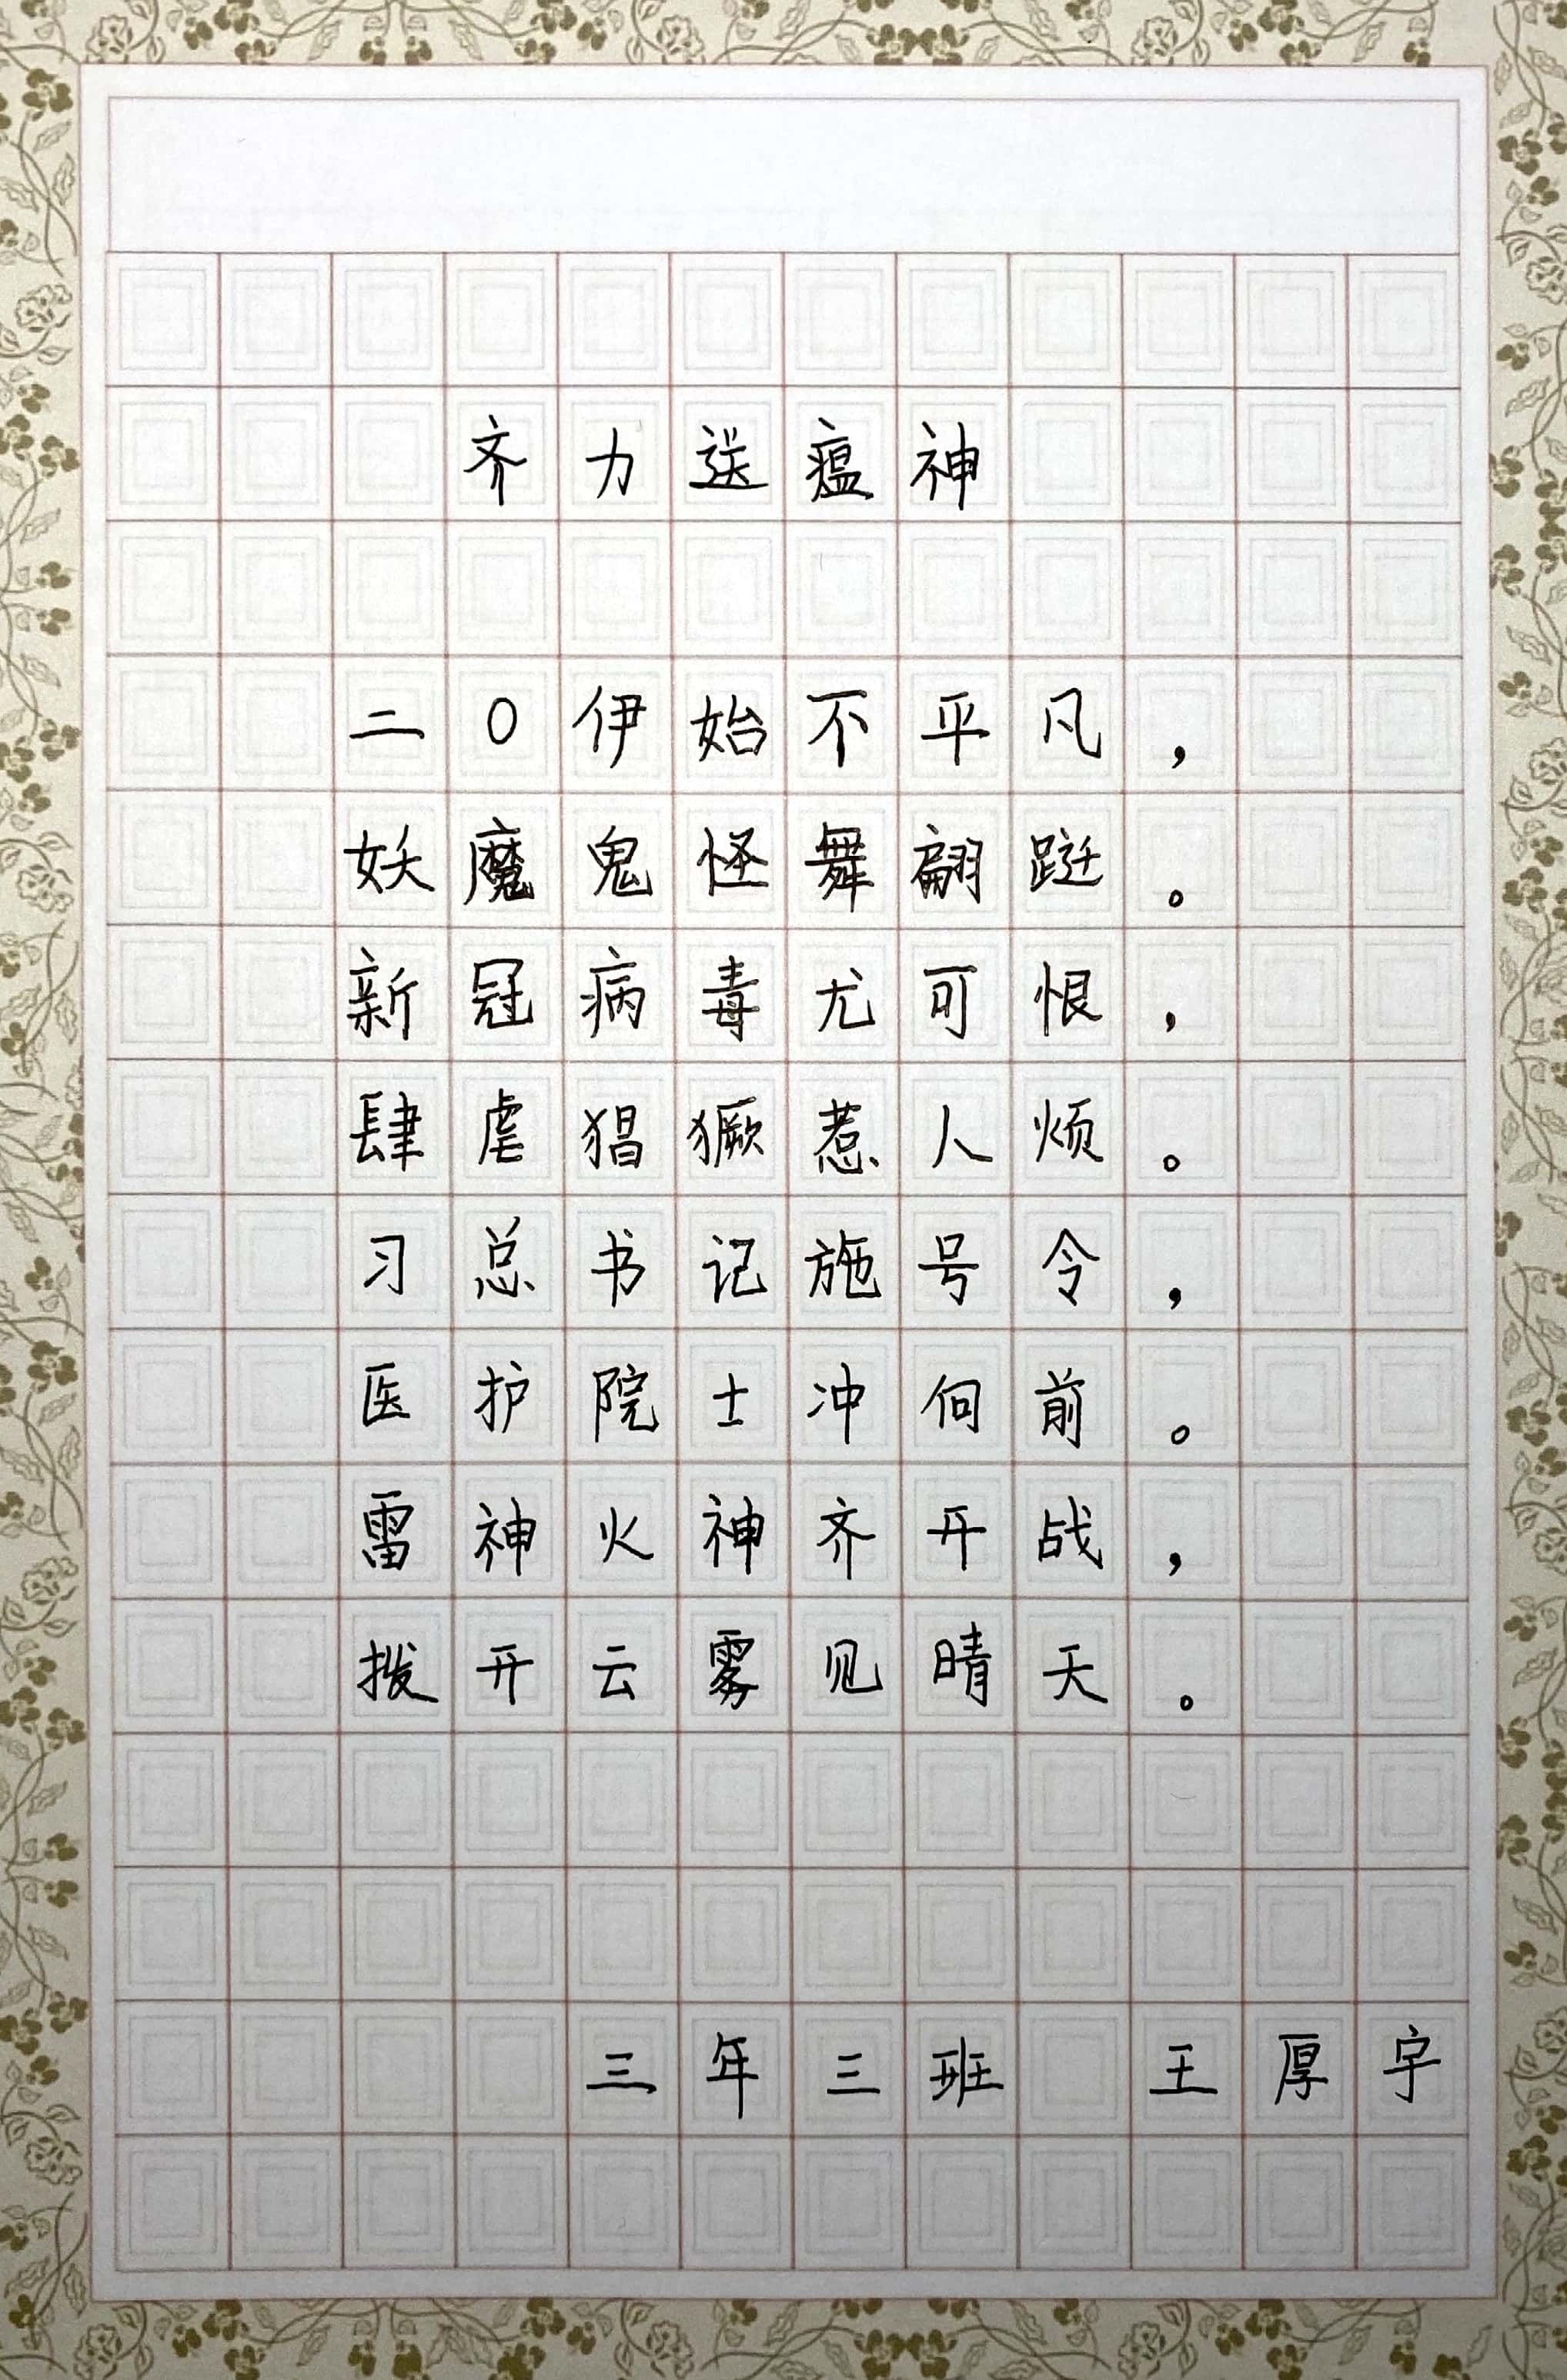 齐力送瘟神
二0伊始不平凡，
妖魔鬼怪舞翩跹。
新冠病毒尤可恨，
肆虐猖獗惹人烦。
习总书记施号令，
医护院士冲向前。
雷神火神齐开战，
拨开云雾见晴天。
三年三班 王厚宇